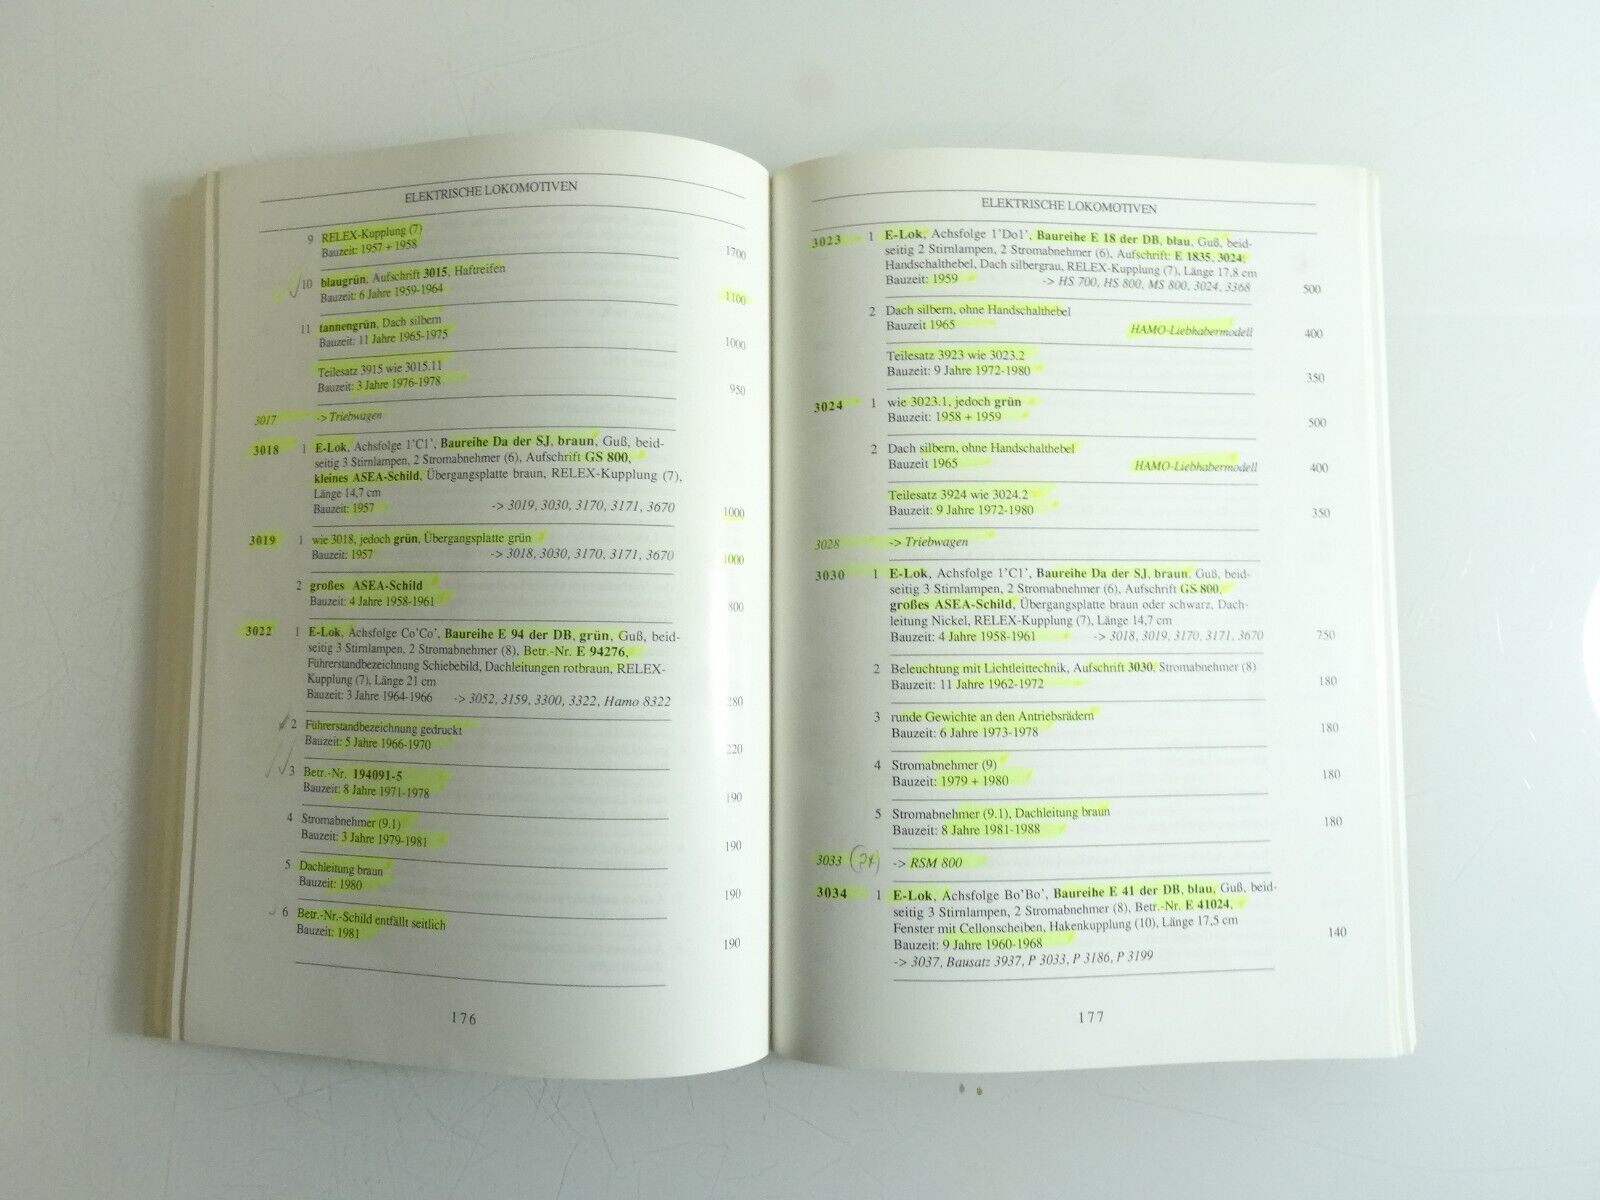 ELEKTRISCHE LOKOMOTIVEN
9 RELEX-Kupplung (7)
Bauzeit: 1957 + 1958 1700
10 blaugrün, Aufschrift 3015, Haftreifen
Bauzeit: 6 Jahre 1959-1964 1100
11 tannengrün, Dach silbern
Bauzeit: 11 Jahre 1965-1975 1000
Teilesatz 3915 wie 3015.11
Bauzeit: 3 Jahre 1976-1978 950
3017 -> Triebwagen
3018 1 E-Lok, Achsfolge 1'C1', Baureihe Da der SJ, braun, Guß, beid-
seitig 3 Stirnlampen, 2 Stromabnehmer (6), Aufschrift GS 800,
kleines ASEA-Schild, Übergangsplatte braun, RELEX-Kupplung (7),
Länge 14,7 cm
Bauzeit: 1957 -> 3019, 3030, 3170, 3171, 3670 1000
3019 1 wie 3018, jedoch grün, Übergangsplatte grün
Bauzeit: 1957 -> 3018, 3030, 3170, 3171, 3670 1000
2 großes ASEA-Schild
Bauzeit: 4 Jahre 1958-1961 800
3022 1 E-Lok, Achsfolge Co'Co', Baureihe E 94 der DB, grün, Guß, beid-
seitig 3 Stirnlampen, 2 Stromabnehmer (8), Betr.-Nr. E 94276,
Führerstandbezeichnung Schiebebild, Dachleitungen rotbraun, RELEX-
Kupplung (7), Länge 21 cm
Bauzeit: 3 Jahre 1964-1966 -> 3052, 3159, 3300, 3322, Hamo 8322 280
2 Führerstandbezeichnung gedruckt
Bauzeit: 5 Jahre 1966-1970 220
3 Betr.-Nr. 194091-5
Bauzeit: 8 Jahre 1971-1978 190
4 Stromabnehmer (9.1)
Bauzeit: 3 Jahre 1979-1981 190
5 Dachleitung braun
Bauzeit: 1980 190
6 Betr.-Nr.-Schild entfällt seitlich
Bauzeit: 1981 190
176
ELEKTRISCHE LOKOMOTIVEN
3023 1 E-Lok, Achsfolge 1'Do1', Baureihe E 18 der DB, blau, Guß, beid-
seitig 2 Stirnlampen, 2 Stromabnehmer (6), Aufschrift: E 1835, 3024;
Handschalthebel, Dach silbergrau, RELEX-Kupplung (7), Länge 17,8 cm
Bauzeit: 1959 -> HS 700, HS 800, MS 800, 3024, 3368 500
2 Dach silbern, ohne Handschalthebel
Bauzeit 1965 HAMO-Liebhabermodell 400
Teilesatz 3923 wie 3023.2
Bauzeit: 9 Jahre 1972-1980 350
3024 1 wie 3023.1, jedoch grün
Bauzeit: 1958 + 1959 500
2 Dach silbern, ohne Handschalthebel
Bauzeit 1965 HAMO-Liebhabermodell 400
Teilesatz 3924 wie 3024.2
Bauzeit: 9 Jahre 1972-1980 350
3028 -> Triebwagen
3030 1 E-Lok, Achsfolge 1'C1', Baureihe Da der SJ, braun, Guß, beid-
seitig 3 Stirnlampen, 2 Stromabnehmer (6), Aufschrift GS 800,
großes ASEA-Schild, Übergangsplatte braun oder schwarz, Dach-
leitung Nickel, RELEX-Kupplung (7), Länge 14,7 cm
Bauzeit: 4 Jahre 1958-1961 -> 3018, 3019, 3170, 3171, 3670 750
2 Beleuchtung mit Lichtleittechnik, Aufschrift 3030, Stromabnehmer (8)
Bauzeit: 11 Jahre 1962-1972 180
3 runde Gewichte an den Antriebsrädern
Bauzeit: 6 Jahre 1973-1978 180
4 Stromabnehmer (9)
Bauzeit: 1979 + 1980 180
5 Stromabnehmer (9.1), Dachleitung braun
Bauzeit: 8 Jahre 1981-1988 180
3033 -> RSM 800
3034 1 E-Lok, Achsfolge Bo'Bo', Baureihe E 41 der DB, blau, Guß, beid-
seitig 3 Stirnlampen, 2 Stromabnehmer (8), Betr.-Nr. E 41024,
Fenster mit Cellonscheiben, Hakenkupplung (10), Länge 17,5 cm
Bauzeit: 9 Jahre 1960-1968 140
-> 3037, Bausatz 3937, P 3033, P 3186, P 3199
177